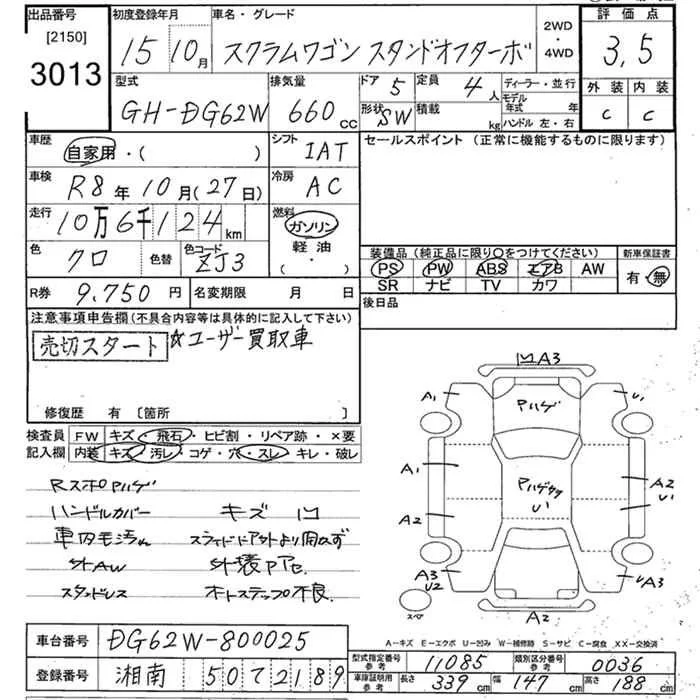 出品番号
[2150]
3013
初度登録年月
15 10月
車名・グレード
スクラムワゴン スタンドオフターボ
2WD
・
4WD
評価点
3,5
外装 内装
C C
型式
GH-DG62W
排気量
660cc
ドア 5
定員 4人
形状 SW
積載 kg
ディーラー・並行
モデル年式 年
ハンドル 左・右
車歴
自家用・( )
シフト
IAT
車検
R8年10月(27日)
冷房
AC
走行
10万6千124km
燃料
ガソリン
軽油
( ・ )
色
クロ
色替
色コード
ZJ3
R券 9.750円
名変期限 月 日
セールスポイント (正常に機能するものに限ります)
装備品(純正品に限り○をつけてください)
PS PW ABS エアB AW
SR ナビ TV カワ
新車保証書
有・無
後日品
注意事項申告欄(不具合内容等は具体的に記入して下さい)
売切スタート ☆ユーザー買取車
修復歴 有 [箇所 ]
検査員記入欄
FW キズ・飛石・ヒビ割・リペア跡・×要
内装 キズ・汚レ・コゲ・穴・スレ・キレ・破レ
Rスポイラハゲ
ハンドルカバー キズ 凹
車内モ汚れ スライドドア外より開かず
社外AW
スタッドレス オートステップ不良
A3
A1
U1
Pハゲ
A1
A2
A2
U1
U1
A3
U2
A3
A2
スペア
A-キズ E-エクボ U-凹み W-補修跡 S-サビ C-腐食 XX-交換済
車台番号 DG62W-800025
登録番号 湘南 50 て 2189
型式指定番号 参考 11085
類別区分番号 参考 0036
車庫証明用 参考 長さ 339cm 幅 147cm 高さ 188cm